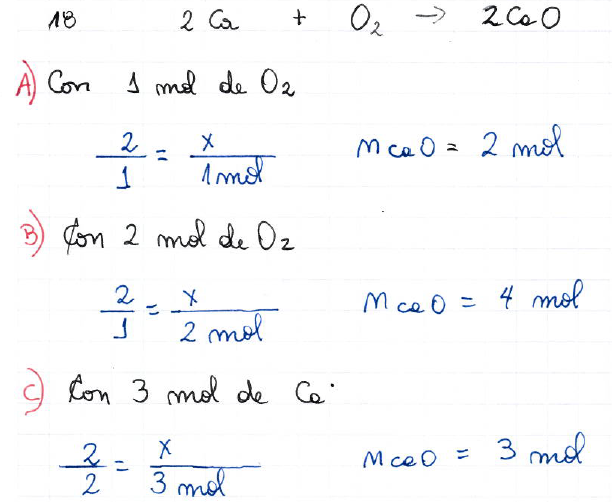 18 2 Ca + O2 → 2 CaO
A) Con 1 mol de O2
2/1 = x/1 mol nCaO = 2 mol
B) Con 2 mol de O2
2/1 = x/2 mol nCaO = 4 mol
C) Con 3 mol de Ca.
2/2 = x/3 mol nCaO = 3 mol